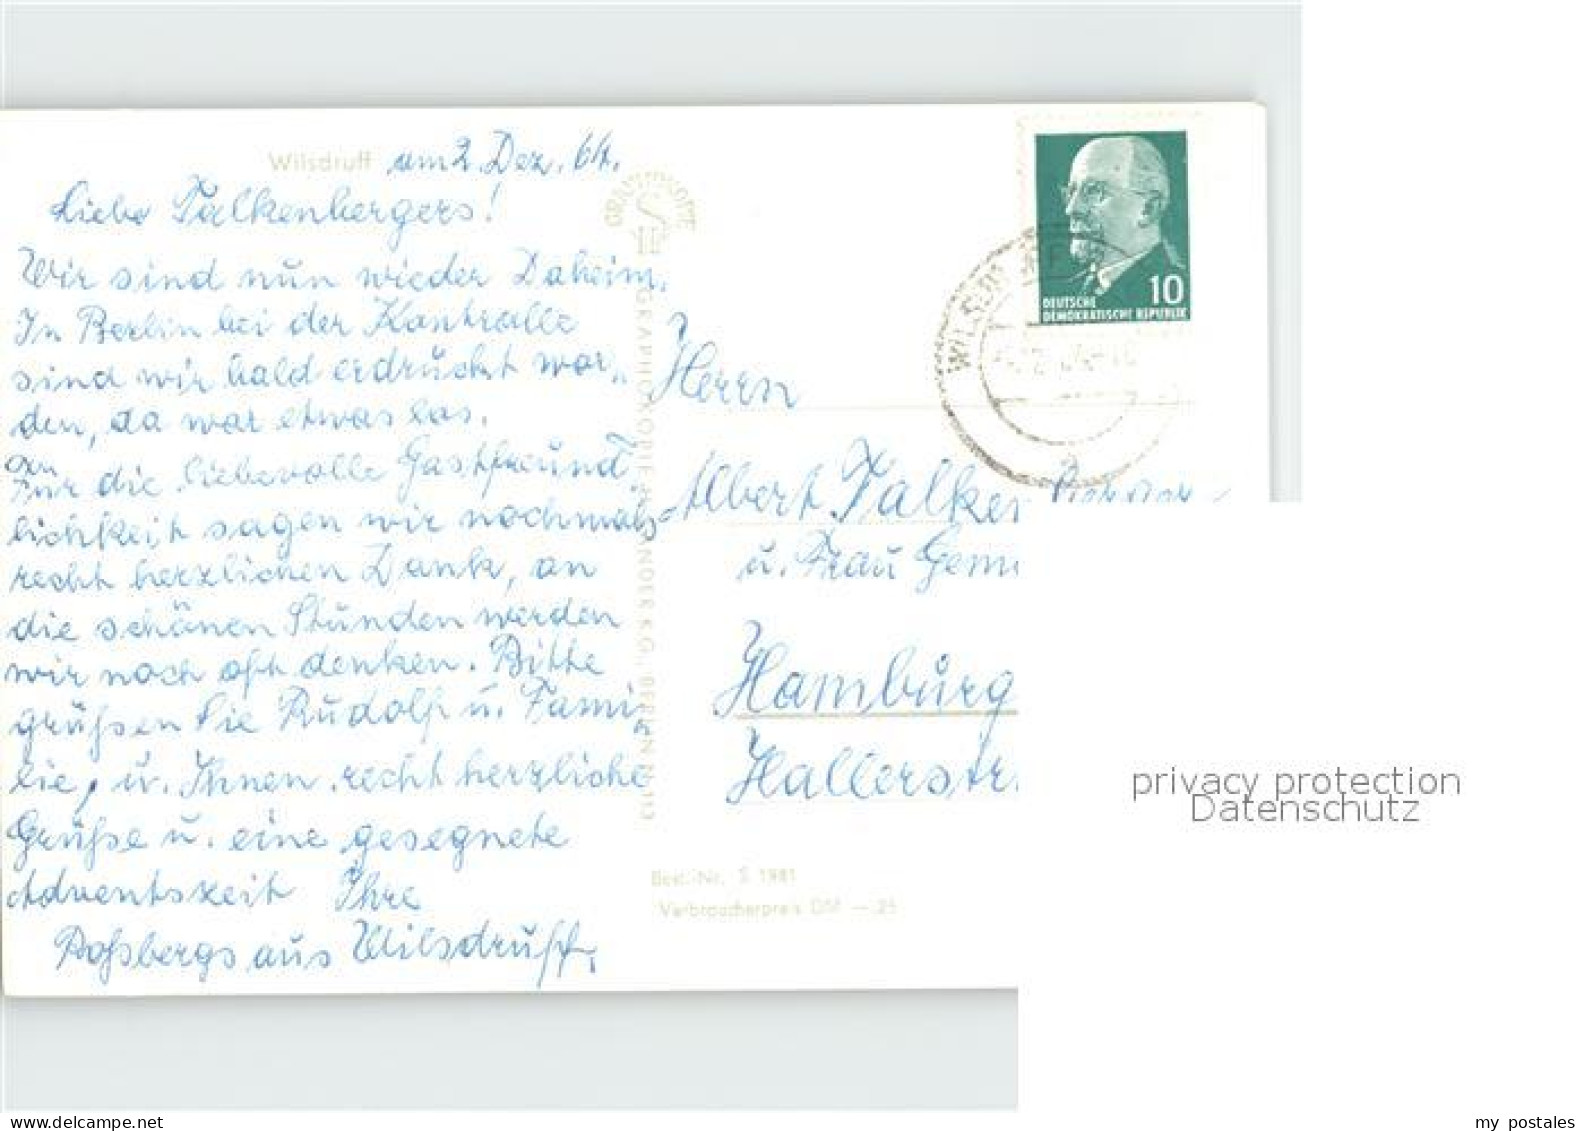 Wilsdruff am 2. Dez. 64.
Liebe Falkenbergers!
Wir sind nun wieder Daheim.
In Berlin bei der Kontrolle
sind wir bald erdrückt wor„
den, da war etwas los.
Für die liebevolle Gastfreund„
lichkeit sagen wir nochmals
recht herzlichen Dank, an
die schönen Stunden werden
wir noch oft denken. Bitte
grüßen Sie Rudolf u. Fami„
lie, u. Ihnen recht herzliche
Grüße u. eine gesegnete
Adventszeit Ihre
Roßbergs aus Wilsdruff.
GRAPHOKOPIE H. SANDER K.G., BERLIN N 113
DEUTSCHE
DEMOKRATISCHE REPUBLIK
10
WILSDRUFF
a
Herrn
Albert Falken
u. Frau Gem
Hamburg
Hallerstr.
Best.-Nr. S 1981
Verbraucherpreis DM —.25
privacy protection
Datenschutz
delcampe.net
my postales